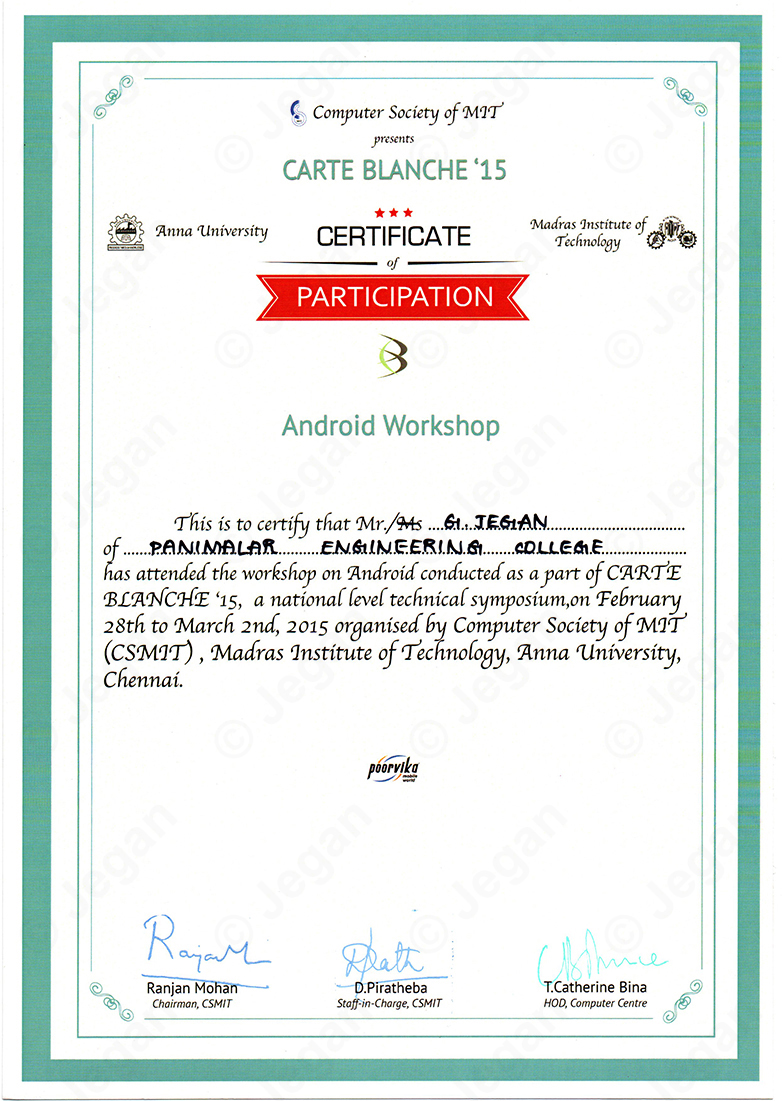 Computer Society of MIT
presents
CARTE BLANCHE ‘15
Anna University
Madras Institute of
Technology
CERTIFICATE
of
PARTICIPATION
Android Workshop
This is to certify that Mr./Ms ....G. JEGAN..............................
of ......PANIMALAR........ENGINEERING......COLLEGE..................
has attended the workshop on Android conducted as a part of CARTE
BLANCHE ‘15, a national level technical symposium,on February
28th to March 2nd, 2015 organised by Computer Society of MIT
(CSMIT) , Madras Institute of Technology, Anna University,
Chennai.
poorvika
mobile
world
Ranjan Mohan
Chairman, CSMIT
D.Piratheba
Staff-in-Charge, CSMIT
T.Catherine Bina
HOD, Computer Centre
© Jegan